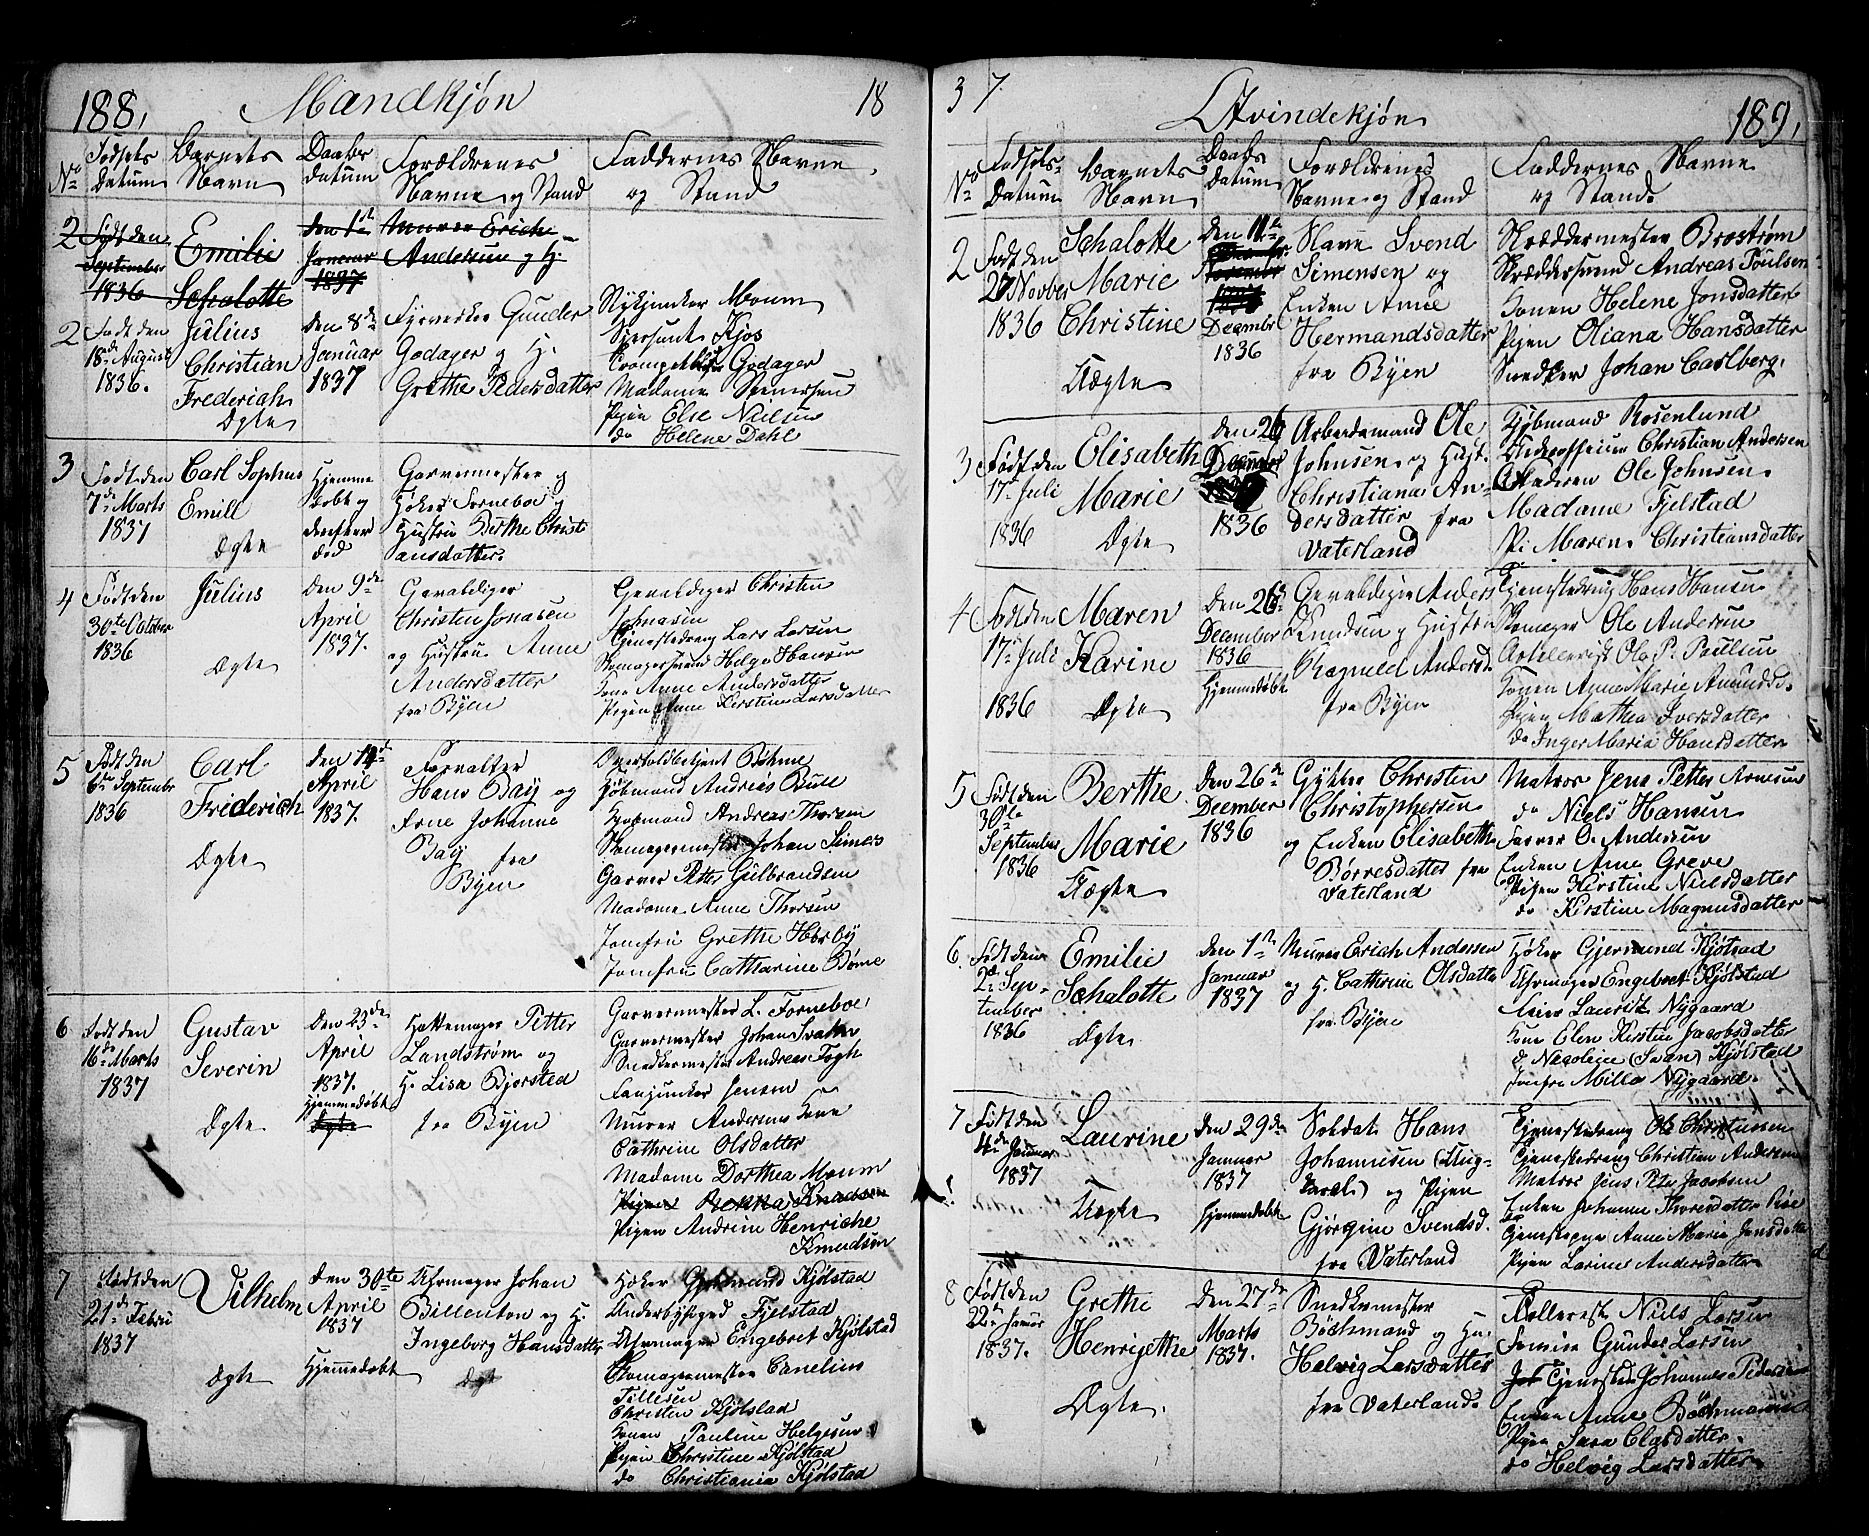 188, Mandkjøn 18
No
Fødsels Datum
Barnets Navn
Daabs Datum
Forældrenes Navne og Stand
Faddernes Navne og Stand
2 Født den September 1836
Emilie Schalotte
den 1st Januar 1837
Murer Erich Andersen og H.
2 Født den 18de August 1836.
Julius Christian Frederich Ægte
den 8de Januar 1837
Fyrverker Gunder Godager og H. Grethe Pedersdatter
Stykjunker Moum
Sersiant Kjos
Godager
Madame Stenersen
Pigen Else Nielsen
do Helene Dahl
3 Født den 7de Marts 1837
Carl Sophus Emill Ægte
Hjemme døbt og derefter død
Garvermester og Høker Forneboe og Hustru Berthe Christiansdatter.
4 Født den 30te October 1836
Julius Ægte
den 9de April 1837.
Gevaldiger Christen Jonasen og Hustru Anne Andersdatter fra Byen
Gevaldiger Christen Johnasen
Tjenestedreng Lars Larsen
Skomagersvend Helge Hansen
Kone Anne Andersdatter
Pigen Anne Kirstine Larsdatter
5 Født den 6te Septembr 1836
Carl Friderich Ægte
den 14de April 1837.
Forvalter Hans Bay og Frue Johanne Bay fra Byen
Overtoldbetjent Bøhme
Kjøbmand Andreas Bull
Kjøbmand Andreas Thorsen
Skomagermester Johan Simers
Garver Petter Gulbrandsen
Madame Anne Thorsen
Jomfru Grethe Hørbÿ
Jomfru Catharine Bøme
6 Født den 16de Marts 1837
Gustav Severin Ægte
den 23de April 1837. Hjemmedøbt Ægte
Hattemager Petter Landstrøm og H. Lisa Bjorsted fra Byen
Garvermester L. Forneboe,
Garvermester Johan
Snedkermester Andreas Fogh
Fanjunker Jensen
Murer Andersens Kone
Cathrine Olsdatter
Madame Dorthea Moum
Pigen Knudsen
Pigen Andrine Henriche
Knudsen
7 Født den 21de Febru 1837
Vilhelm Ægte
den 30te April 1837 Hjemmedøbt
Uhrmager Johan Billenton og H. Ingeborg Hansdatter Ægte
Høker Gjermund Kjølstad
Underbyfoged Fjelstad
Uhrmager Engebret Kjølstad
Skomagermester Cornelius
Tillesen
Christen Kjølstad
Konen Pauline Helgesen
Pigen Christine Kjølstad
do Christiania Kjølstad
37. Qvindekjøn 189,
No
Fødsels- Datum
Barnets Navn
Daabs Datum
Forældrenes Navne og Stand
Faddernes Navne og Stand.
2 Født den 27 Novber 1836
Schalotte Marie Christine Uægte
den 11te Decembr 1836
Slave Svend Simensen og Enken Anne Hermandsdatter fra Byen
Skræddermester Brostrøm
Skræddersvend Andreas Poulsen
Konen Helene Jonsdatter
Pigen Oliana Hansdatter
Snedker Johan Carlberg.
3 Født den 17de Juli 1836
Elisabeth Marie Ægte
den 26 December 1836
Arbeidsmand Ole Johnsen og Hust. Christiana Andersdatter fra Vaterland
Kjøbmand Rosenlund
Underofficier Christian Andersen
Faderen Ole Johnsen.
Madame Fjelstad
Pi Maren Christiansdatter
4 Født den 17de Juli 1836
Maren Karine Ægte
den 26de December 1836 Hjemmedøbt
Gevaldigir Anders Knudsen og Hustru Ragnild Andersd. fra Byen
Tjenestedreng Hans Hansen
Skomager Ole Andersen
Artillerist Ole P. Paulsen
Konen Anne Marie Amundsd.
Pigen Mathea Iversdatter
do Inger Maria Hansdatter
5 Født den 30te September 1836
Berthe Marie Uægte
den 26de December 1836
Christen Christophersen og Enken Elisabeth Børresdatter fra Vaterland
Matros Jens Petter Arnesen
do Niels Hansen
Farver O. Andersen
Enken Ane Greve
Pigen Kirstine Nielsdatter
do Kirstine Magnusdatter
6. Født den 2de September 1836
Emilie Schalotte Ægte
den 1te Januar 1837
Murer Erich Andersen og H. Cathrine Olsdatter fra Byen
Høker Gjermund Kjølstad
Uhrmager Engebret Kjølstad
Laurits Nygaard
Kone Elen Kirstin Jacobsdatter
do Nicoline (Svan) Kjølstad
Jomfru Milla Nygaard.
7 Født den 4de Januar 1837
Laurine Uægte
den 29de Januar 1837 Hjemmedøbt
Soldat Hans Johannesen og Pigen Gjørgine Svendsd. fra Vaterland
Tjenestedreng Ole Christiansen
Tjenestedreng Christian Andersen
Matros Jens Peter Jacobsen
Enken Johanne Thoresdatter
Tjenestepige Anne Marie Jensdatter
Pigen Larine Andersdatter
8 Født den 22de Januar 1837.
Grethe Henrijethe Ægte.
den 27de Marts 1837.
Snedkermester Bøchmand og Hu. Helvig Larsdatter fra Vaterland
Niels Larsen
Gunder Larsen
Tjenesten Johannes Pedersen
Enken Anne Bøchmand
Pigen Sara Clasdatter.
do Helvig Larsdatter